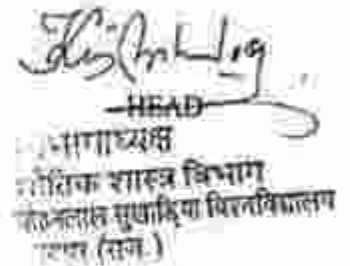 HEAD
विभागाध्यक्ष
भौतिक शास्त्र विभाग
मोहनलाल सुखाड़िया विश्वविद्यालय
उदयपुर (राज.)